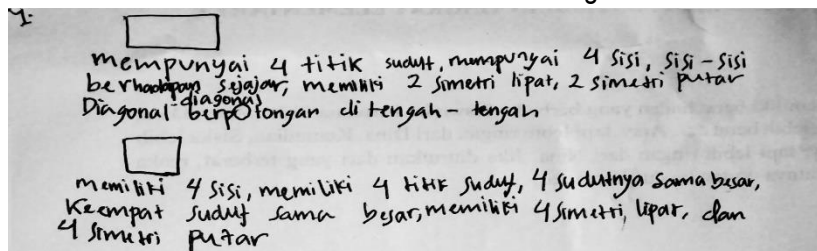 9.
mempunyai 4 titik sudut, mempunyai 4 sisi, sisi-sisi
berhadapan sejajar, memiliki 2 simetri lipat, 2 simetri putar
Diagonal-diagonal berpotongan di tengah-tengah
memiliki 4 sisi, memiliki 4 titik sudut, 4 sudutnya sama besar,
Keempat sudut sama besar, memiliki 4 simetri, lipat, dan
4 simetri putar